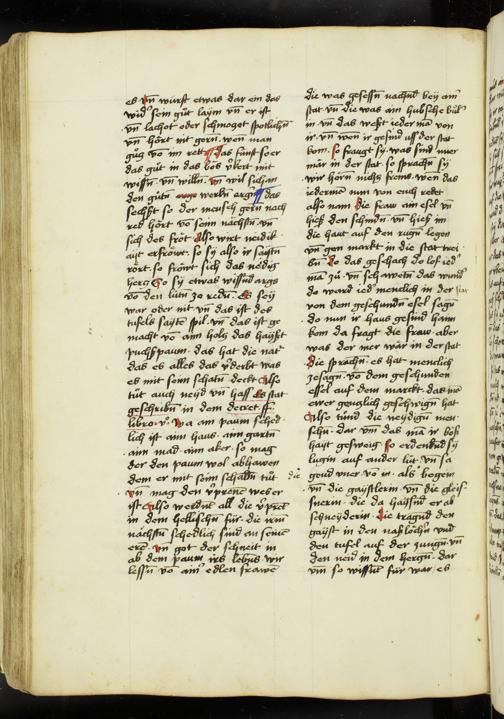 es vn̄ würft etwas dar ein das
wid᷒ sein güt laÿm vn̄ er ist
vn̄ lachot oder schmogot spotlichn̄
vn̄ hört mit gern wen man
gütz vo im rett das fünft so er
das güt in das bös v̄kert mit
wissn̄ vn̄ willn̄ vn̄ wil sechan
den gütn̄ werkn args das
sechst so der mensch gern nach
red hört vō seim nächstn̄ vn̄
sich des fröt Also wirt neidik
ait erfröwt so sÿ also ir saÿtn̄
rört so fröwt sich das neÿdig
hercz So sÿ etwas wissnd args
vō den lütn̄ ze redn̄ Es seÿ
war oder nit vn̄ das ist des
tüfels saÿte spil vn̄ das ist ge
macht vō aim holcz das haÿst
puchspaum das hat die nat᷒
das es alles das v̄derbt was
es mit seim schatn̄ deckt also
tüt auch neÿd vn̄ hass Es stat
geschribn̄ in dem decret
libro v̄ wa am paum sched
lich ist aim haus aim gartn̄
aim mad aim aker so mag
der den paum wol abhawen
dem er mit seim schattn̄ tüt
vn̄ mag den v̄prenē wes er
ist Also werdnt all die v̄prēt
in dem hellischn̄ für die irm
nächstn̄ schedlich sind an seinē
erē vn̄ got der schneit in
ab dem paum irs lebns wir
lessn̄ vō aim᷒ edlen frawē
die was gesessn̄ nachnd beÿ aim᷒
stat vn̄ die was ain hubsche
in vn̄ das west iederman von
ir vn̄ wen ir gesind uss der stat
kom so fraugt sÿ was sind nuer
mär in der stat so sprachn̄ sÿ
wir hörn nichs frems wen das
iederman nun von euch redet
also nam die fraw ain esel vn̄
hiess den schindn̄ vn̄ hiess im
die haut auf den rugn legen
vn̄ gen markt in die stat trei
bn̄ Do das geschach do lof ied᷒
man zü vn̄ schawetn das wund᷒
do ward ied᷒ menclich in der stat
von dem geschundn̄ esel sagn̄
do nun ir haus gesind haim
kom da fragt die fraw aber
was der mer wär in der stat
die sprachn̄ es hat menclich
ze sagn̄ vō dem geschunden
essel auf dem markt das mā
eweer genczlich geschwign hat
Also tünd die neÿdign men
schn̄ dar vm̄ das mā ir bös
haÿt gesweig so erdenknd sÿ
lugin auf ander lüt vn̄ sa
gend mer vō in als bogem
die vn̄ die gaÿstlerin vn̄ die gleis
snerin die da haÿssnd er ab
schneÿderin Die tragnd den
gaÿst in den naslöchn̄ vnd
den tüfel auf der zungn̄ vn̄
den neid in dem herczn̄ dar
vm̄ so wissnt für war es